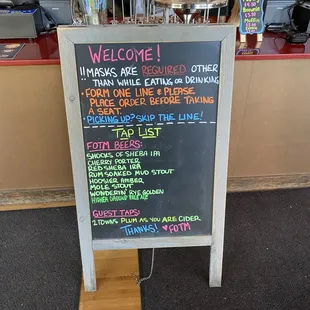 WELCOME!
!!MASKS ARE REQUIRED OTHER
THAN WHILE EATING OR DRINKING
• FORM ONE LINE & PLEASE
PLACE ORDER BEFORE TAKING
A SEAT.
• PICKING UP? SKIP THE LINE!
TAP LIST
FOTM BEERS:
SHOCKS OF SHEBA IPA
CHERRY PORTER
RED SHEBA IRA
RUM SOAKED MUD STOUT
HOOSIER AMBER
MOLE STOUT
WONDERIN' RYE GOLDEN
PALE ALE
GUEST TAPS:
2 TOWNS PLUM AS YOU ARE CIDER
THANKS! ♥FOTM